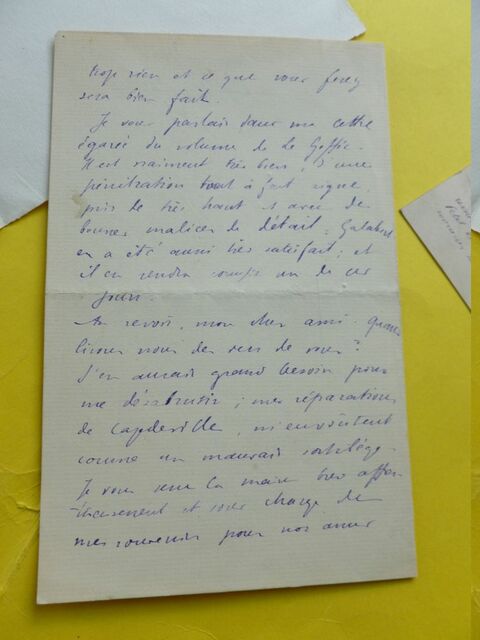 trop rien et ce que vous ferez
sera bien fait.
Je vous parlais dans ma lettre
égarée du volume de Le Goffic.
Il est vraiment très bien, d'une
pénétration tout à fait aigue,
pris de très haut et avec de
bonnes malices de détail. Galabert
en a été aussi très satisfait ; et
il en rendra compte un de ces
jours.
Au revoir, mon cher ami. Quand
lirons nous des vers de vous ?
J'en aurais grand besoin pour
me désabrutir ; mes réparations
de Capdeville, m'envoûtent
comme un mauvais sortilège.
Je vous serre la main très affec-
tueusement et vous charge de
mes souvenirs pour nos amis